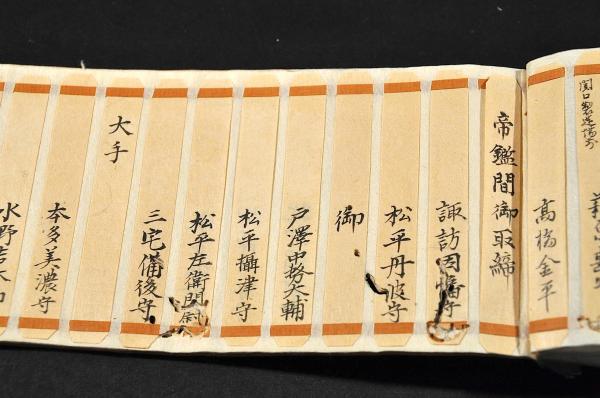 関口製造場分
高橋金平
帝鑑間御取締
諏訪因幡守
松平丹波守
御
戸澤中務大輔
松平攝津守
松平左衛門尉
三宅備後守
大手
本多美濃守
水野